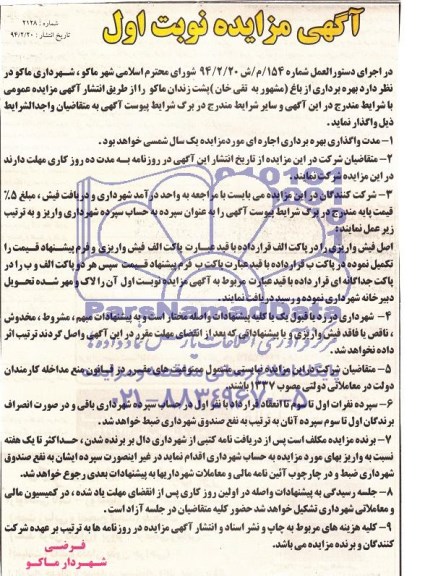 آگهی مزایده نوبت اول
شماره : ۲۱۲۸
تاریخ انتشار : ۹۴/۲/۲۰
در اجرای دستورالعمل شماره ۱۵۴/م/ش ۹۴/۲/۲۰ شورای محترم اسلامی شهر ماکو ، شهرداری ماکو در
نظر دارد بهره برداری از باغ (مشهور به تقی خان )پشت زندان ماکو را از طریق انتشار آگهی مزایده عمومی
با شرایط مندرج در این آگهی و سایر شرایط مندرج در برگ شرایط پیوست آگهی به متقاضیان واجدالشرایط
ذیل واگذار نماید .
۱- مدت واگذاری بهره برداری اجاره ای موردمزایده یک سال شمسی خواهد بود .
۲- متقاضیان شرکت در این مزایده از تاریخ انتشار این آگهی در روزنامه به مدت ده روز کاری مهلت دارند
در این مزایده شرکت نمایند.
۳- شرکت کنندگان در این مزایده می بایست با مراجعه به واحد درآمد شهرداری و دریافت فیش ، مبلغ ۵٪
قیمت پایه مندرج در برگ شرایط پیوست آگهی را به عنوان سپرده به حساب سپرده شهرداری واریز و به ترتیب
زیر عمل نمایند:
اصل فیش واریزی را در پاکت الف قرار داده با قید عبارت پاکت الف فیش واریزی و فرم پیشنهاد قیمت را
تکمیل نموده در پاکت ب قرار داده با قید عبارت پاکت ب فرم پیشنهاد قیمت سپس هر دو پاکت الف و ب را در
پاکت جداگانه ای قرار داده با قید عبارت مربوط به آگهی مزایده نوبت اول آن را لاک و مهر شده تحویل
دبیر خانه شهرداری نموده و رسید دریافت نمایند.
۴- شهرداری در رد یا قبول یک یا کلیه پیشنهادات واصله مختار است و به پیشنهادات مبهم ، مشروط ، مخدوش
، ناقص یا فاقد فیش واریزی و یا پیشنهاداتی که بعد از انقضای مهلت مقرر در این آگهی واصل گردند ترتیب اثر
داده نخواهد شد.
۵- متقاضیان شرکت در این مزایده نبایستی مشمول ممنوعیت های مقرر در قانون منع مداخله کارمندان
دولت در معاملاتی دولتی مصوب ۱۳۳۷ باشند.
۶- سپرده نفرات اول تا سوم تا انعقاد قرارداد با نفر اول در حساب سپرده شهرداری باقی و در صورت انصراف
برندگان اول تا سوم سپرده آنان به ترتیب به نفع صندوق شهرداری ضبط خواهد شد.
۷- برنده مزایده مکلف است پس از دریافت نامه کتبی از شهرداری دال بر برنده شدن ، حداکثر تا یک هفته
نسبت به واریز بهای مورد مزایده به حساب شهرداری اقدام نماید در غیر اینصورت سپرده ایشان به نفع صندوق
شهرداری ضبط و در چارچوب آئین نامه مالی و معاملات شهرداریها به پیشنهادات بعدی رجوع خواهد شد.
۸- جلسه رسیدگی به پیشنهادات واصله در اولین روز کاری پس از انقضای مهلت یاد شده ، در کمیسیون مالی و
معاملاتی شهرداری تشکیل خواهد شد حضور کلیه متقاضیان در جلسه آزاد است .
۹- کلیه هزینه های مربوط به چاپ و نشر اسناد و انتشار آگهی مزایده در روزنامه ها به ترتیب بر عهده شرکت
کنندگان و برنده مزایده می باشد.
فرضی
شهردار ماکو
ParsNamadData
۰۲۱-۸۸۳۴۹۶۷۰-۵